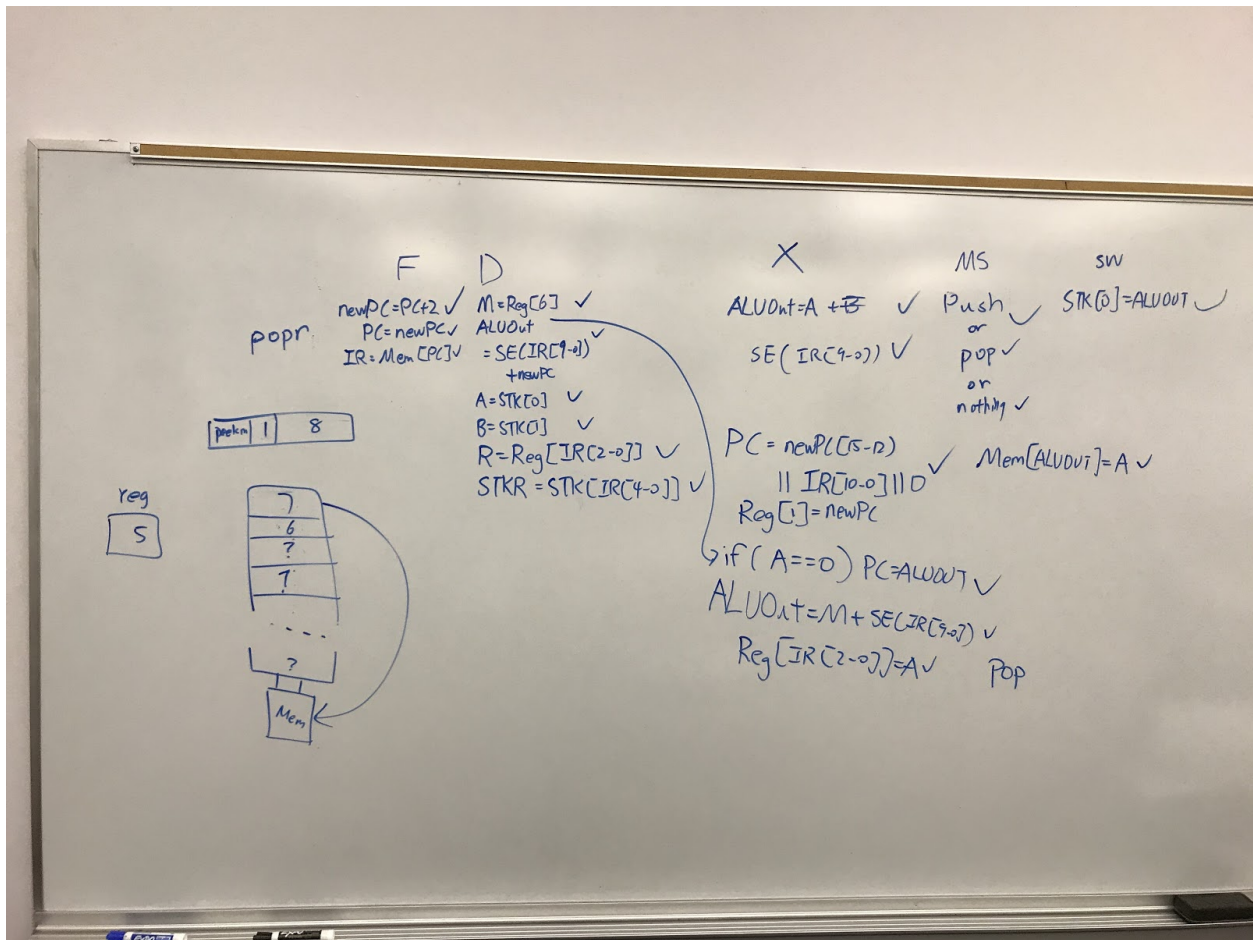 F D X MS SW
popr
newPC=PC+2 ✓
PC=newPC✓
IR=Mem[PC]✓
M=Reg[6] ✓
ALUOut
=SE(IR[9-0]) ✓
+newPC
A=STK[0] ✓
B=STK[1] ✓
R=Reg[IR[2-0]] ✓
STKR=STK[IR[4-0]] ✓
ALUOut=A+B ✓
SE(IR[9-0]) ✓
PC=newPC[15-12]
|| IR[10-0]||0 ✓
Reg[1]=newPC
if(A==0) PC=ALUOUT ✓
ALUOut=M+SE(IR[9-0]) ✓
Reg[IR[2-0]]=A✓
Push ✓
or
pop ✓
or
nothing ✓
Mem[ALUOUT]=A ✓
Pop
STK[0]=ALUOUT ✓
1 8
reg
5
7
6
?
?
- - - -
?
Mem